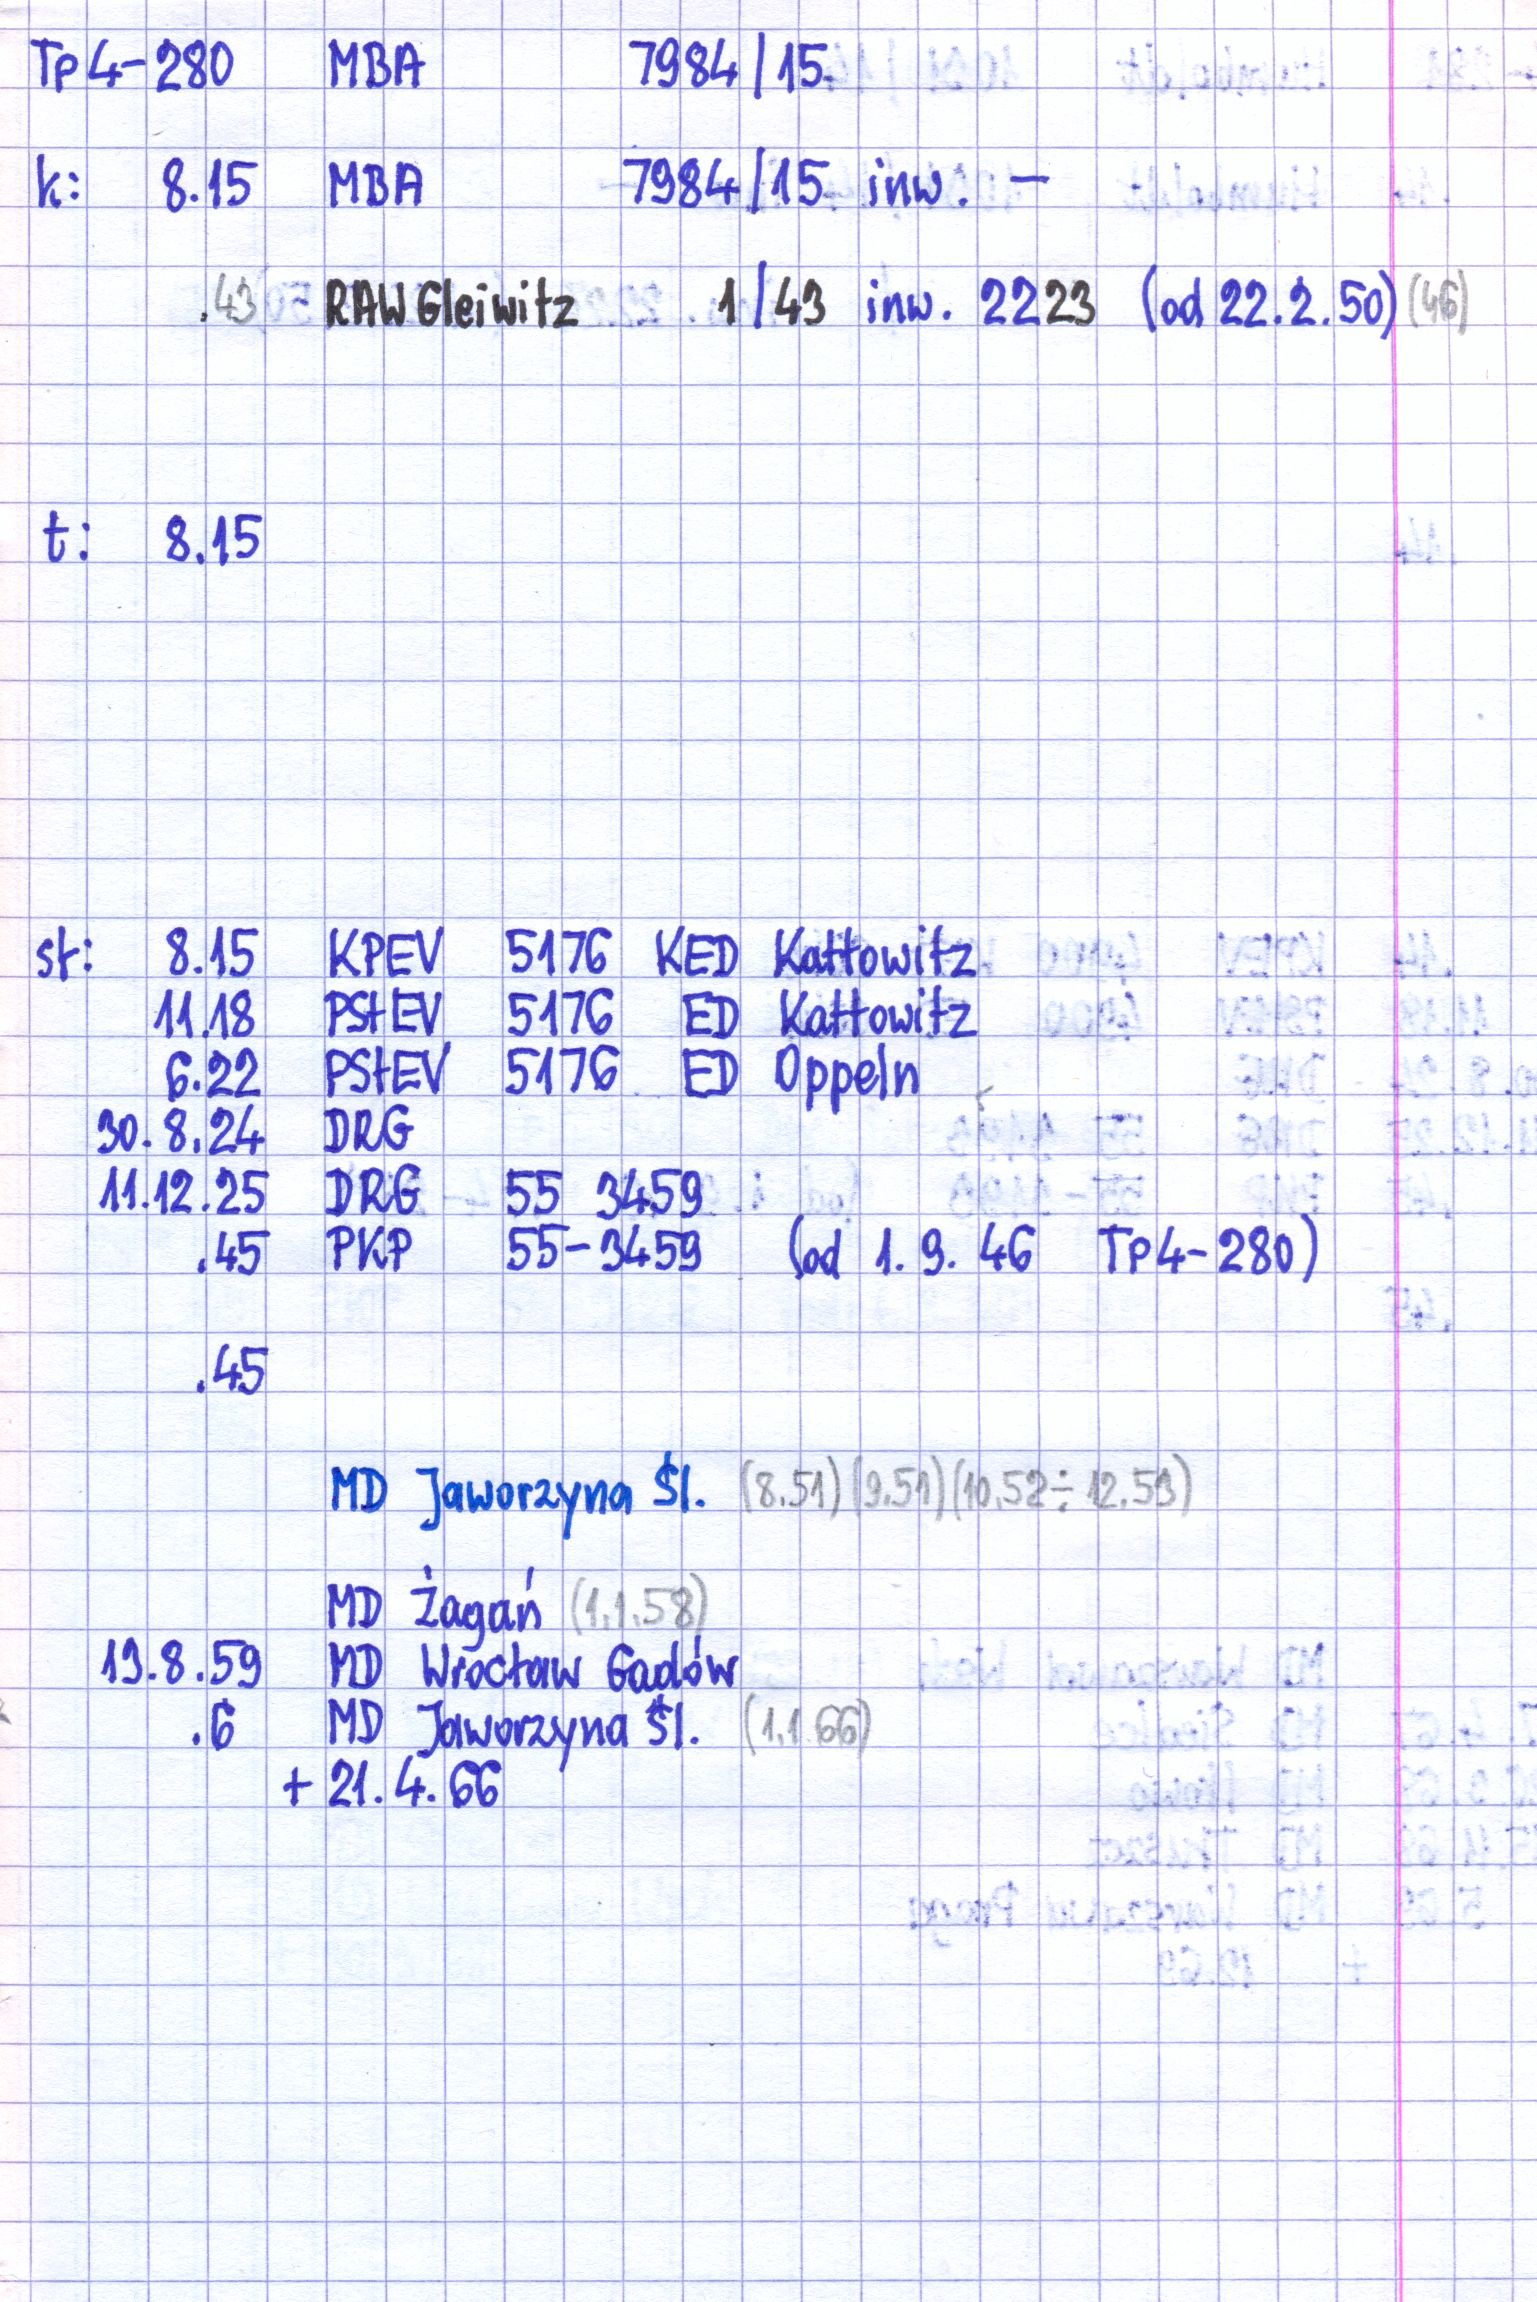 Tp4-280 MBA 7984/15
k: 8.15 MBA 7984/15 inw. —
.43 RAW Gleiwitz 1/43 inw. 2223 (od 22.2.50) (46)
t: 8.15
st: 8.15 KPEV 5176 KED Kattowitz
11.18 PStEV 5176 ED Kattowitz
6.22 PStEV 5176 ED Oppeln
30.8.24 DRG
11.12.25 DRG 55 3459
.45 PKP 55-3459 (od 1.9.46 Tp4-280)
.45
MD Jaworzyna Śl. (8.51) (9.51) (10.52÷12.53)
MD Żagań (1.1.58)
19.8.59 MD Wrocław Gadów
.6 MD Jaworzyna Śl. (1.1.66)
+ 21.4.66